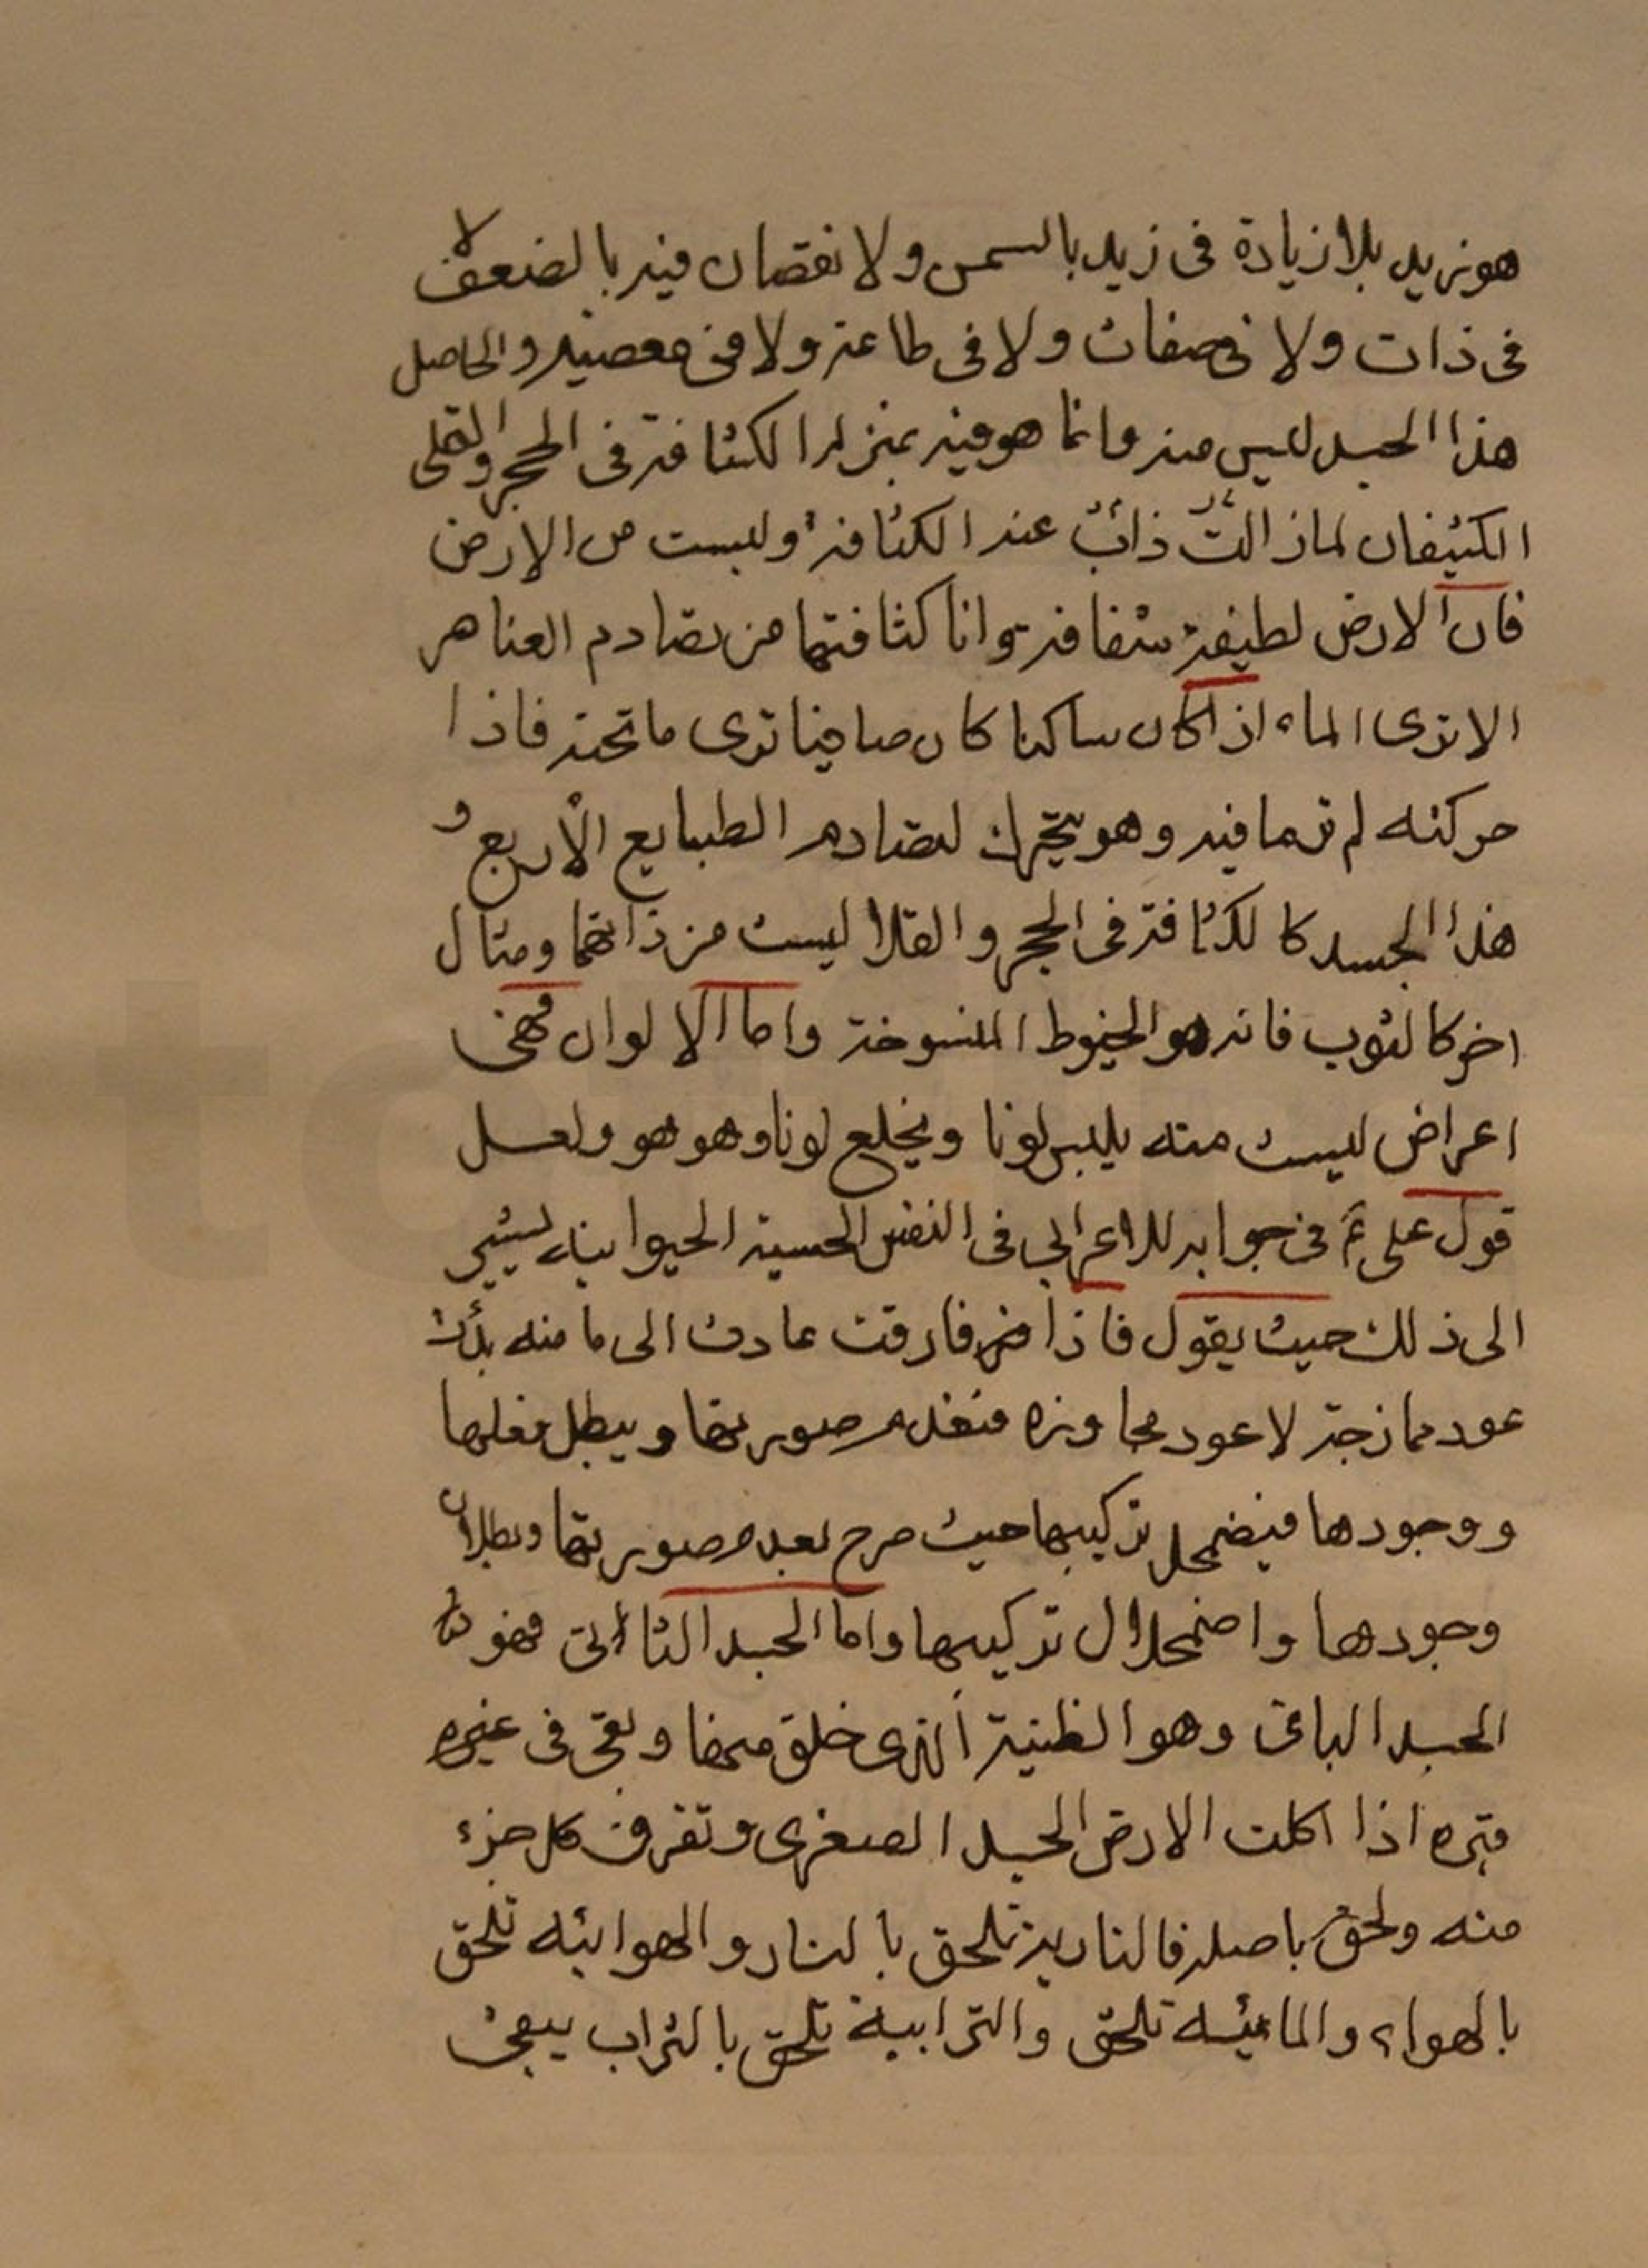 هو زيد بلا زيادة فى زيد بالسمن ولا نقصان فيه بالضعف لا
فى ذات ولا فى صفات ولا فى طاعة ولا فى معصية والحاصل
هذا الجسد ليس منه وانما هو فيه بمنزلة الكثافة فى الحجر والقلى
الكثيفان ذائب عند الكثافة وليست من الارض
فان الارض لطيفة شفافة وانا كثافتها من تصادم العناصر
الا ترى الماء اذا كان ساكنا كان صافيا ترى ما تحته فاذا
حركته لم تر ما فيه وهو يتحرك لتصادم الطبايع الأربع و
هذا الجسد كالكثافة فى الحجر والقلا ليست من ذاتهما ومثال
اخر كالثوب فانه هو الخيوط المنسوخة واما الالوان فهى
اعراض ليست منه يلبس لونا ويخلع لونا وهو هو ولعل
قول على ع فى جوابه للاعرابى فى النفس الحسية الحيوانيه يشير
الى ذلك حيث يقول فاذا فارقت عادت الى ما منه بدأت
عود ممازجة لا عود مجاوزه فتعدم صورتها ويبطل فعلها
ووجودها فيضمحل تركيبها حيث صرح بعدم صورتها وبطلان
وجودها واضمحلال تركيبها واما الجسد الثانى فهو
الجسد الباقى وهو الطينة الذى خلق منها وبقى فى غيره
قبره اذا اكلت الارض الجسد العنصرى وتفرق كل جزء
منه ولحق باصله فالنارية تلحق بالنار والهوائيه تلحق
بالهواء والمائيه تلحق والترابية تلحق بالتراب يبقى